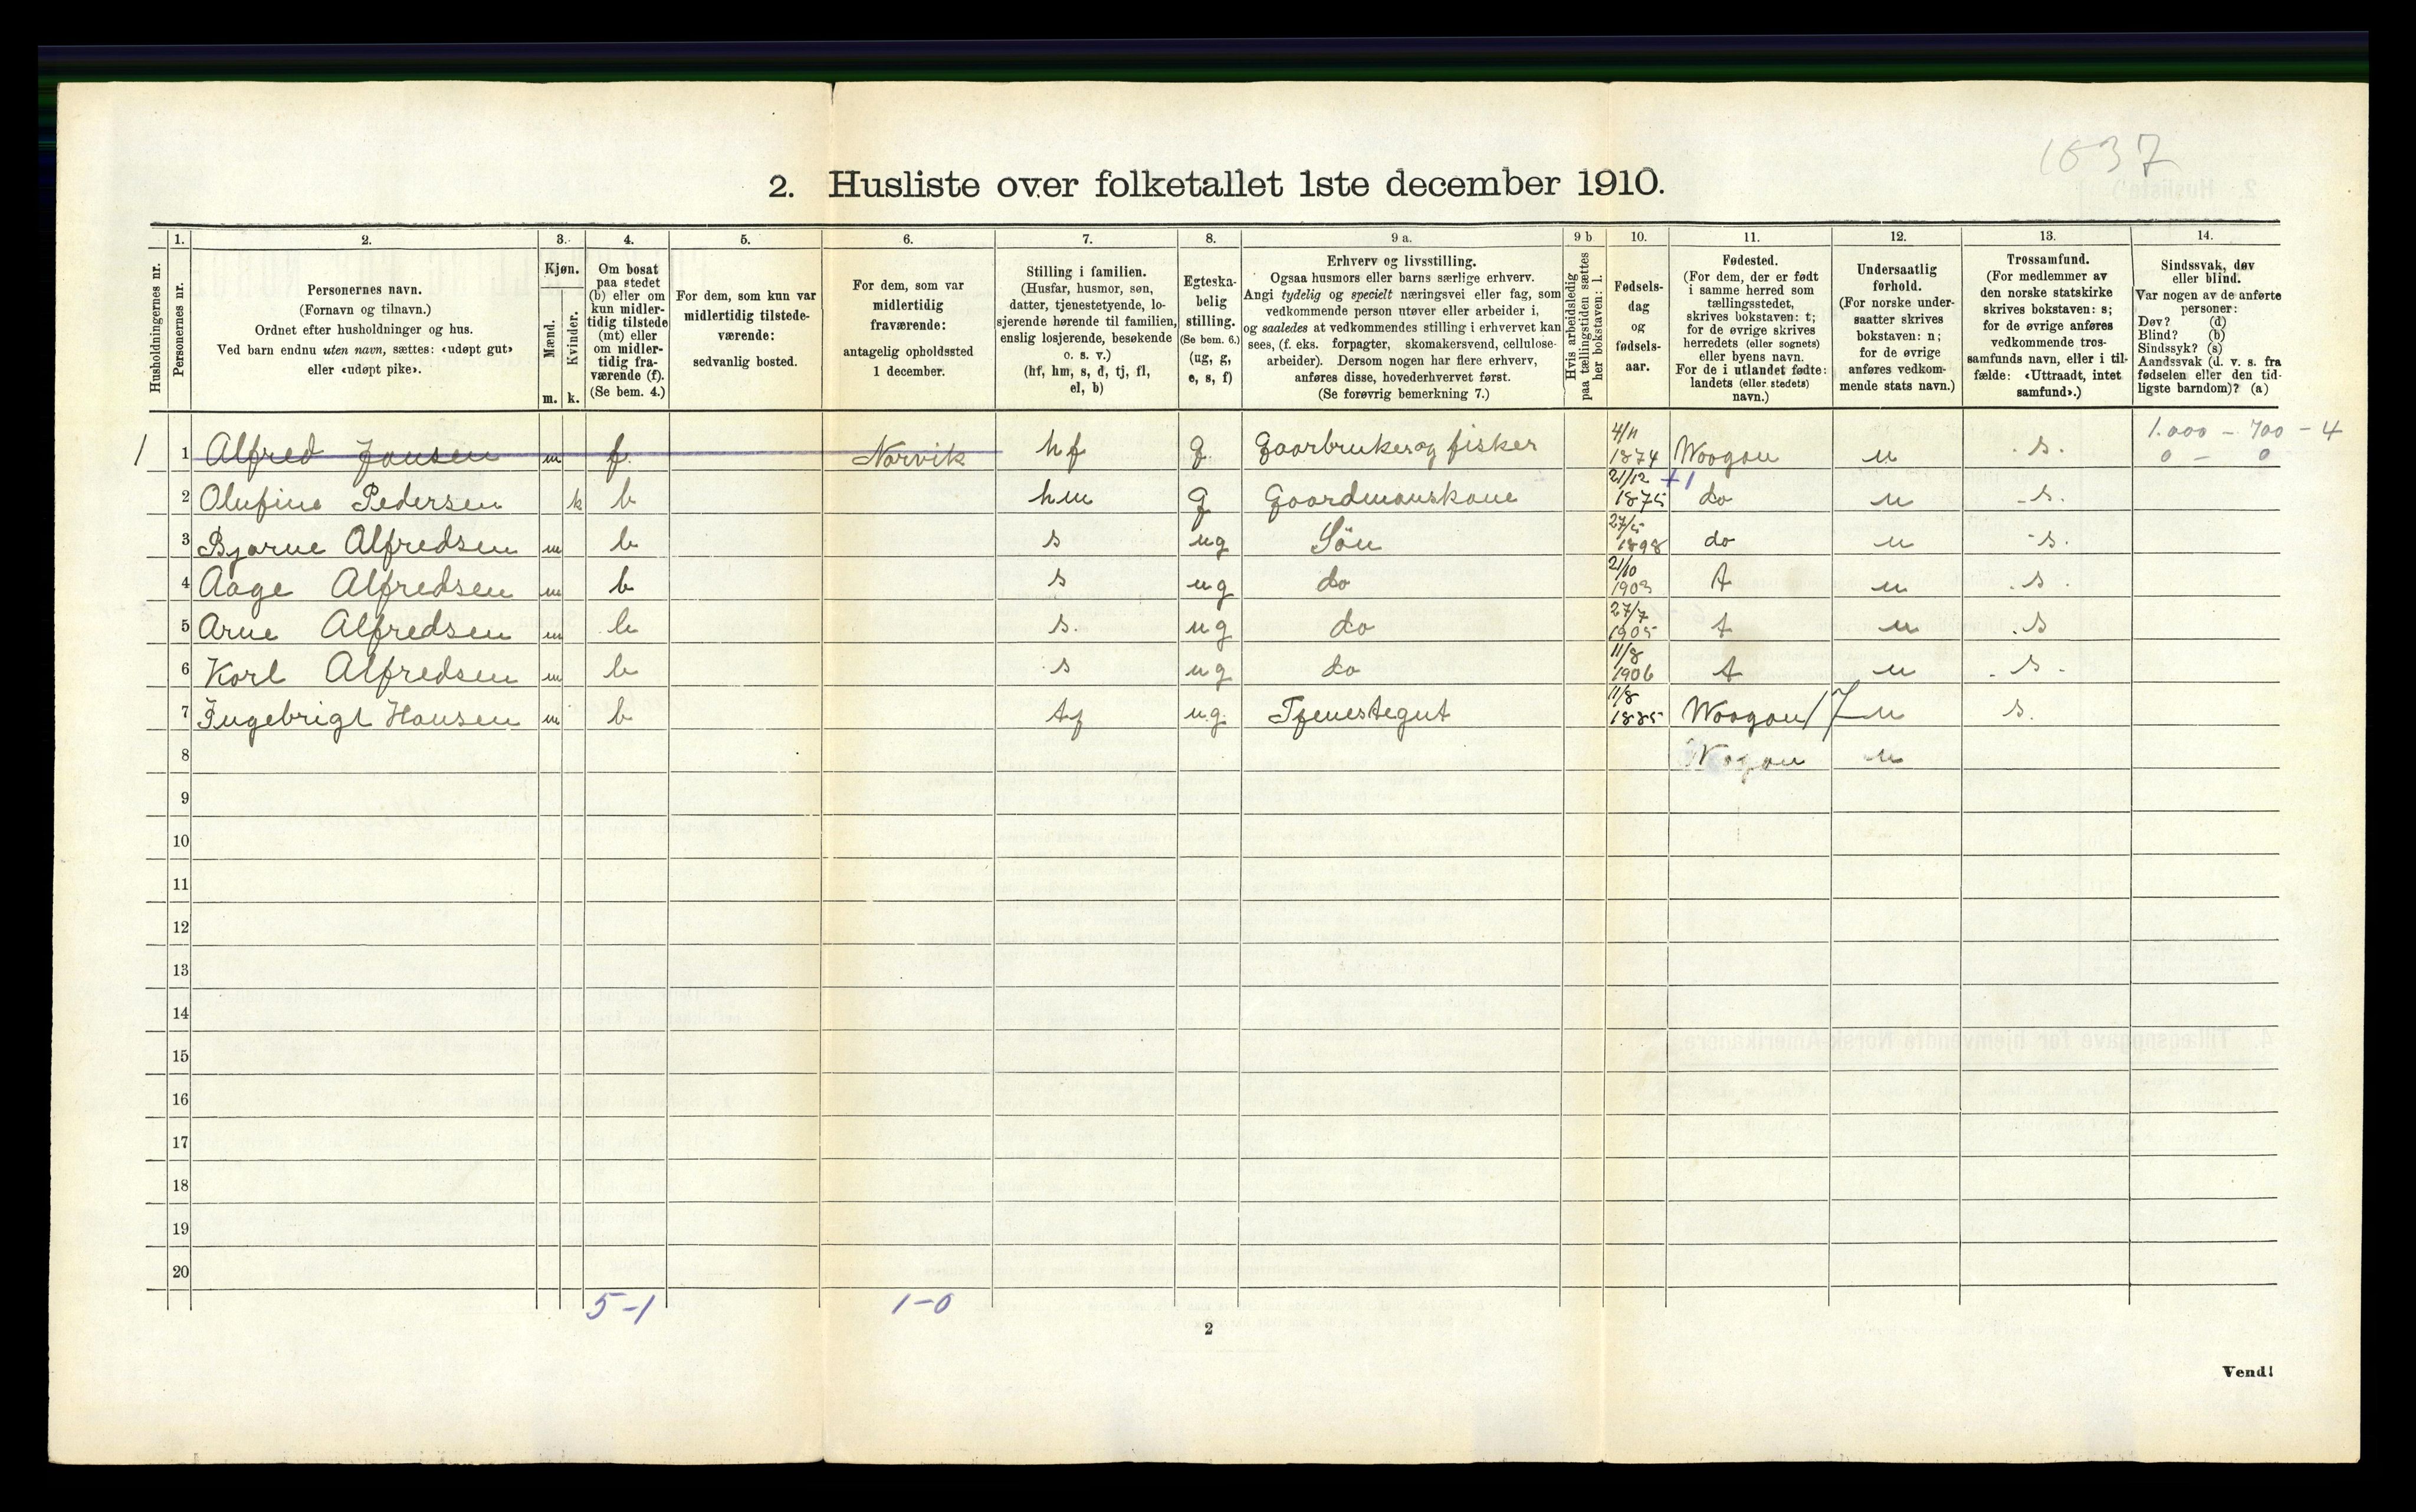 1637
2. Husliste over folketallet 1ste december 1910.
Husholdningernes nr.
1.
Personernes nr.
2.
Personernes navn.
(Fornavn og tilnavn.)
Ordnet efter husholdninger og hus.
Ved barn endnu uten navn, sættes: «udøpt gut»
eller «udøpt pike».
3.
Kjøn.
Mænd.
Kvinder.
m. k.
4.
Om bosat
paa stedet
(b) eller om
kun midler-
tidig tilstede
(mt) eller
om midler-
tidig fra-
værende (f).
(Se bem. 4.)
5.
For dem, som kun var
midlertidig tilstede-
værende:
sedvanlig bosted.
6.
For dem, som var
midlertidig
fraværende:
antagelig opholdssted
1 december.
7.
Stilling i familien.
(Husfar, husmor, søn,
datter, tjenestetyende, lo-
sjerende hørende til familien,
enslig losjerende, besøkende
o. s. v.)
(hf, hm, s, d, tj, fl,
el, b)
8.
Egteska-
belig
stilling.
(Se bem. 6.)
(ug, g,
e, s, f)
9 a.
Erhverv og livsstilling.
Ogsaa husmors eller barns særlige erhverv.
Angi tydelig og specielt næringsvei eller fag, som
vedkommende person utøver eller arbeider i,
og saaledes at vedkommendes stilling i erhvervet kan
sees, (f. eks. forpagter, skomakersvend, cellulose-
arbeider). Dersom nogen har flere erhverv,
anføres disse, hovederhvervet først.
(Se forøvrig bemerkning 7.)
9 b
Hvis arbeidsledig
paa tællingstiden sættes
her bokstaven: l.
10.
Fødsels-
dag
og
fødsels-
aar.
11.
Fødested.
(For dem, der er født
i samme herred som
tællingsstedet,
skrives bokstaven: t;
for de øvrige skrives
herredets (eller sognets)
eller byens navn.
For de i utlandet fødte:
landets (eller stedets)
navn.)
12.
Undersaatlig
forhold.
(For norske under-
saatter skrives
bokstaven: n;
for de øvrige
anføres vedkom-
mende stats navn.)
13.
Trossamfund.
(For medlemmer av
den norske statskirke
skrives bokstaven: s;
for de øvrige anføres
vedkommende tros-
samfunds navn, eller i til-
fælde: «Uttraadt, intet
samfund».)
14.
Sindssvak, døv
eller blind.
Var nogen av de anførte
personer:
Døv? (d)
Blind? (b)
Sindssyk? (s)
Aandssvak (d. v. s. fra
fødselen eller den tid-
ligste barndom)? (a)
1 1 Alfred Jansen m f. Narvik hf g. Gaarbruker og fisker 4/11 1874 Woogan n s. 1.000 - 700 - 4
0 - 0
2 Olufine Pedersen k b hm g Gaardmanskone 21/12 1875 +1 do n s.
3 Bjarne Alfredsen m b s ug Sön 27/5 1898 do n s.
4 Aage Alfredsen m b s ug do 21/10 1903 t n s.
5 Arne Alfredsen m b s. ug do 27/7 1905 t n s
6 Karl Alfredsen m b s ug do 11/8 1906 t n s.
7 Ingebrigt Hansen m b tj ug. Tjenestegut 11/8 1885 Woogan/7 n s.
8 Wogan n
9
10
11
12
13
14
15
16
17
18
19
20
5-1 1-0
2
Vend!